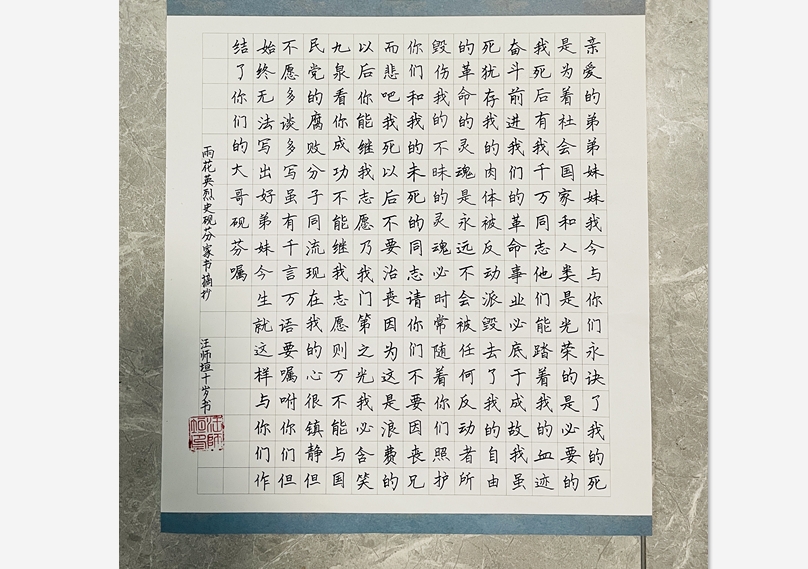 亲爱的弟弟妹妹我今与你们永诀了我的死
是为着社会国家和人类是光荣的是必要的
我死后有我千万同志他们能踏着我的血迹
奋斗前进我们的革命事业必底于成故我虽
死犹存我的肉体被反动派毁去了我的自由
的革命的灵魂是永远不会被任何反动者所
毁伤我的不昧的灵魂必时常随着你们照护
你们和我的未死的同志请你们不要因丧兄
而悲吧我死以后不要治丧因为这是浪费的
以后你能继我志愿乃我门第之光我必含笑
九泉看你成功不能继我志愿则万不能与国
民党的腐败分子同流现在我的心很镇静但
不愿多谈多写虽有千言万语要嘱咐你们但
始终无法写出好弟妹今生就这样与你们作
结了你们的大哥砚芬嘱
雨花英烈史砚芬家书摘抄
汪师垣十岁书